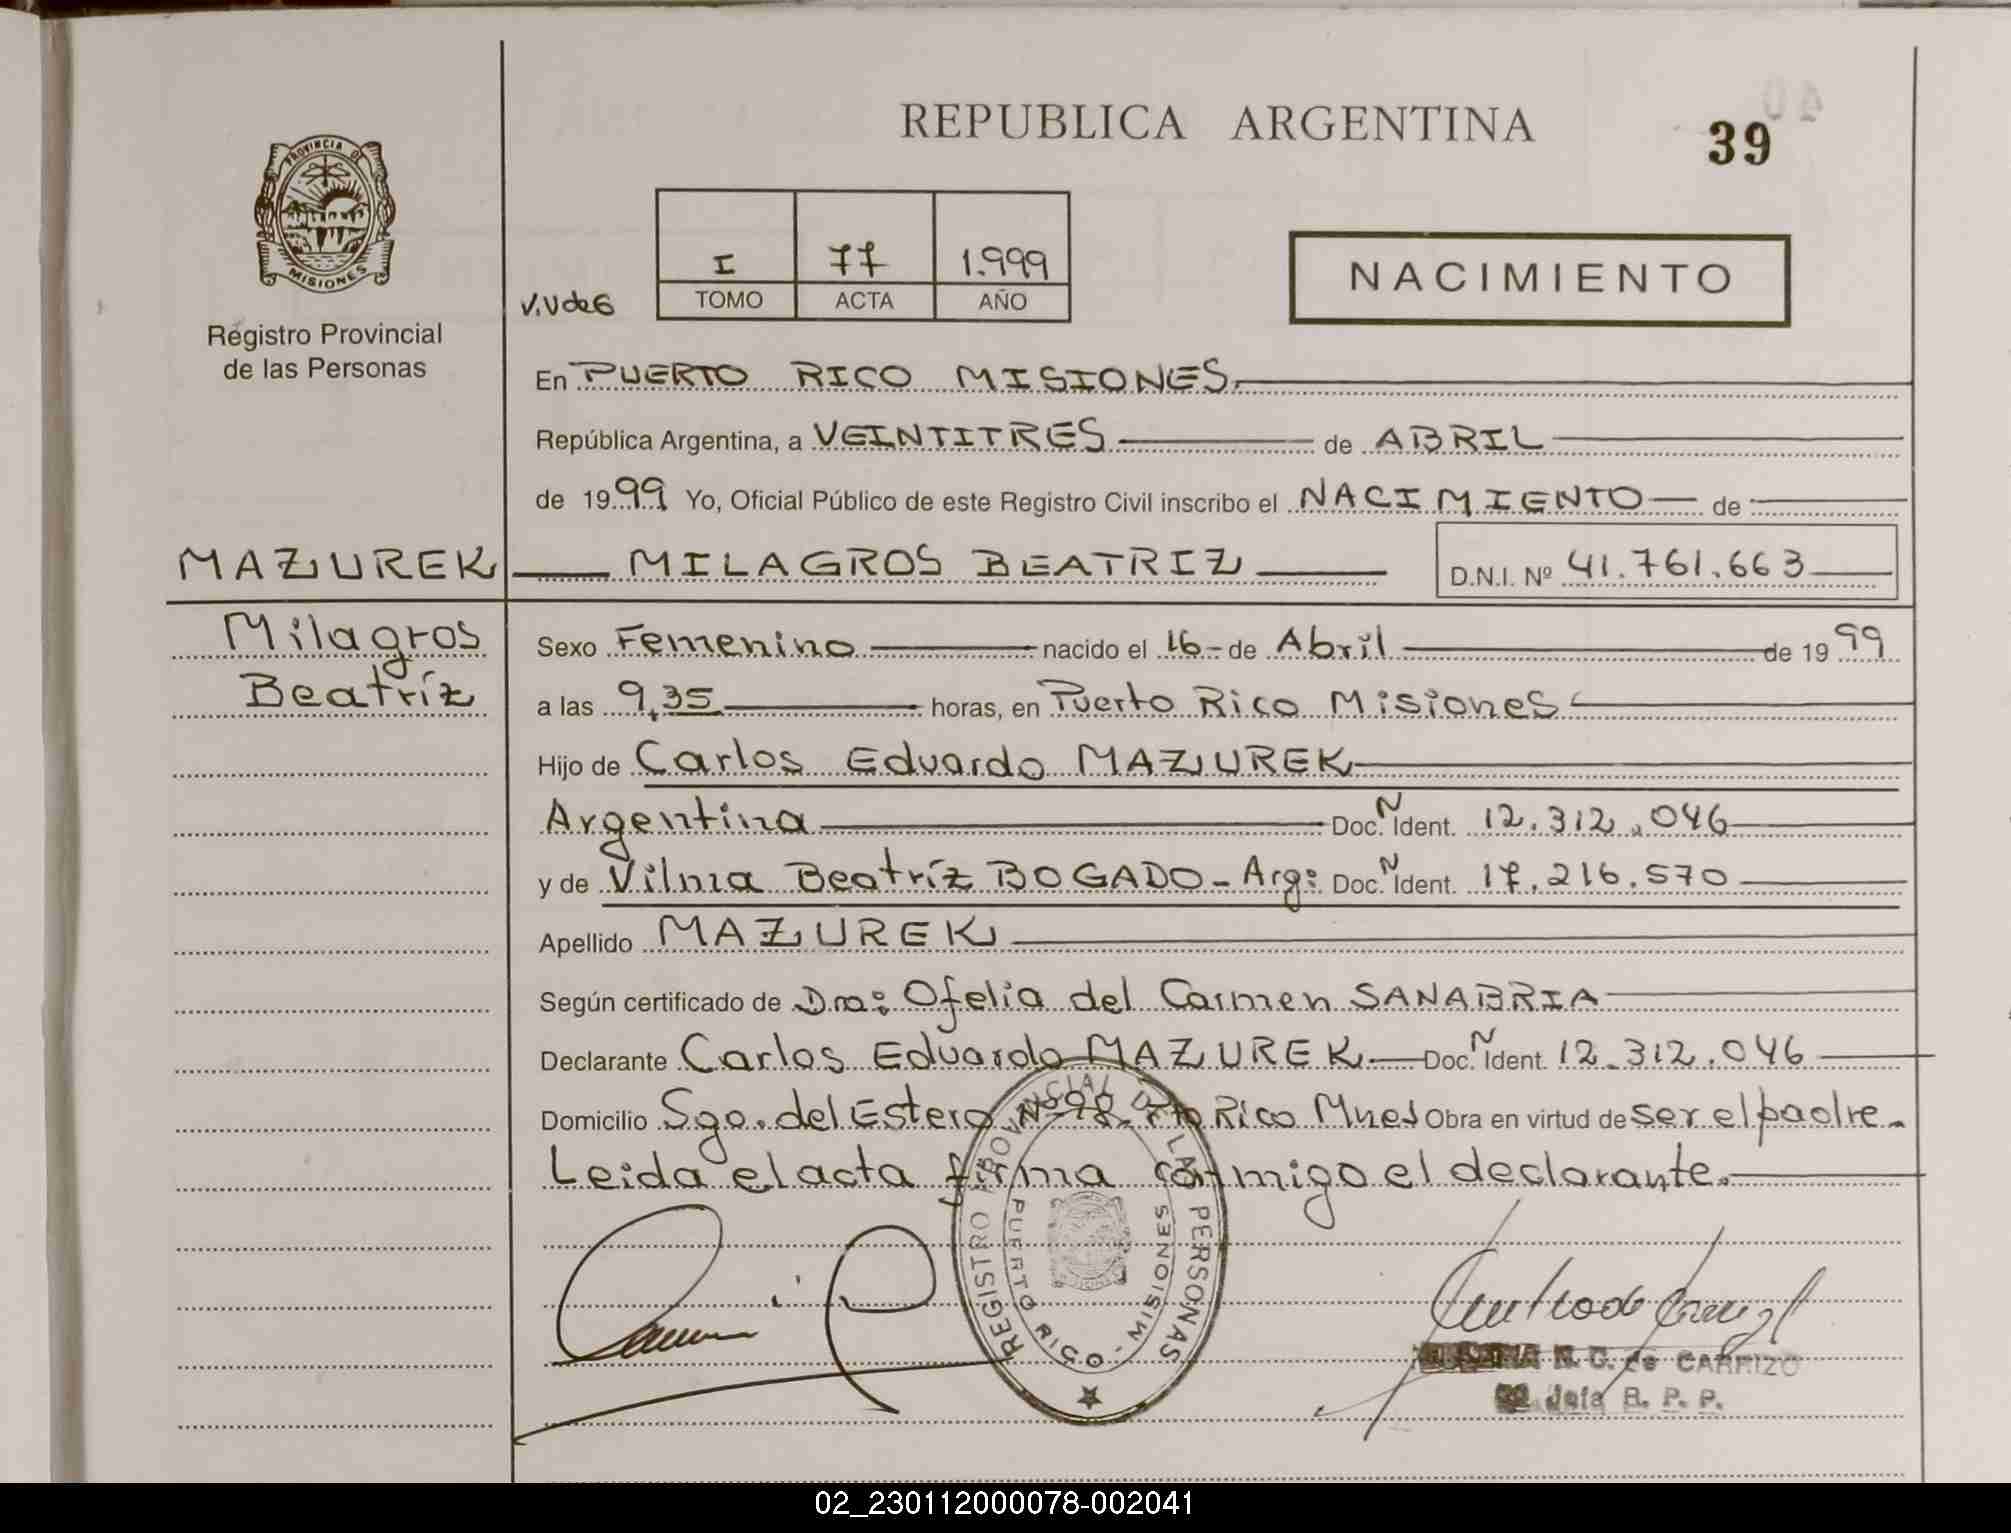 REPUBLICA ARGENTINA
39
PROVINCIA DE
MISIONES
Registro Provincial
de las Personas
I 77 1.999
TOMO ACTA AÑO
V.V de G
NACIMIENTO
En PUERTO RICO MISIONES.
República Argentina, a VEINTITRES de ABRIL
de 1999 Yo, Oficial Público de este Registro Civil inscribo el NACIMIENTO de
MAZUREK MILAGROS BEATRIZ D.N.I. Nº 41.761.663
Milagros
Beatríz
Sexo Femenino nacido el 16 - de Abril de 1999
a las 9,35 horas, en Puerto Rico Misiones
Hijo de Carlos Eduardo MAZUREK
Argentina Doc. N Ident. 12.312.046
y de Vilma Beatríz BOGADO - Arg: Doc. N Ident. 17.216.570
Apellido MAZUREK
Según certificado de Dra: Ofelia del Carmen SANABRIA
Declarante Carlos Eduardo MAZUREK Doc. N Ident. 12.312.046
Domicilio Sgo. del Estero Pto Rico Mnes Obra en virtud de ser el padre.
Leida el acta firma conmigo el declarante.
REGISTRO PROVINCIAL DE LAS PERSONAS
PUERTO RICO - MISIONES
N. G. de CARRIZO
Jefa R. P. P.
02_230112000078-002041